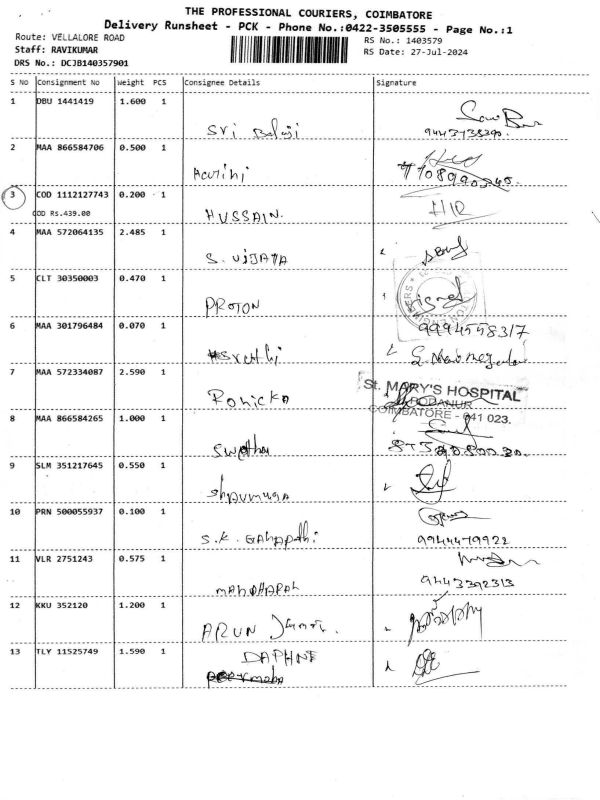 THE PROFESSIONAL COURIERS, COIMBATORE
Delivery Runsheet - PCK - Phone No.:0422-3505555 - Page No.:1
Route: VELLALORE ROAD
RS No.: 1403579
Staff: RAVIKUMAR
RS Date: 27-Jul-2024
DRS No.: DCJB140357901
S No Consignment No Weight PCS Consignee Details Signature
1 DBU 1441419 1.600 1
Sri Balaji
2 MAA 866584706 0.500 1
3 COD 1112127743 0.200 1
COD Rs.439.00
HUSSAIN.
4 MAA 572064135 2.485 1
S. VIJAYA
5 CLT 30350003 0.470 1
PROTON
6 MAA 301796484 0.070 1
9994558317
7 MAA 572334087 2.590 1
St. MARY'S HOSPITAL
PODANUR
COIMBATORE - 641 023.
8 MAA 866584265 1.000 1
9 SLM 351217645 0.550 1
10 PRN 500055937 0.100 1
S.K. 9944479922
11 VLR 2751243 0.575 1
MANOHARAN 9443392313
12 KKU 352120 1.200 1
ARUN
13 TLY 11525749 1.590 1
DAPHNE